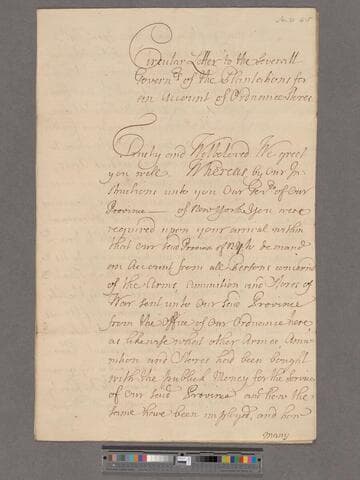 Circular Letter to the severall
Govern.rs of the Plantations for
an Account of Ordnance Stores
Trusty and Welbeloved We greet
you well. Whereas by our In
structions unto you Our Gov.r of Our
Province — of New York You were
required upon your arrival within
that Our said Province of to demand
an Account from all Persons concerned
of the Arms, Ammunition and Stores of
War sent unto Our said Province
from the Office of Our Ordnance here,
as likewise what other Armes Ammu
nition and Stores had been bought
with the publick Money for the service
of Our said Province and how the
same have been imployd, and how
many